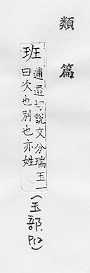 類篇
班逋還切說文分瑞玉一
曰次也別也亦姓
(玉部,P12)